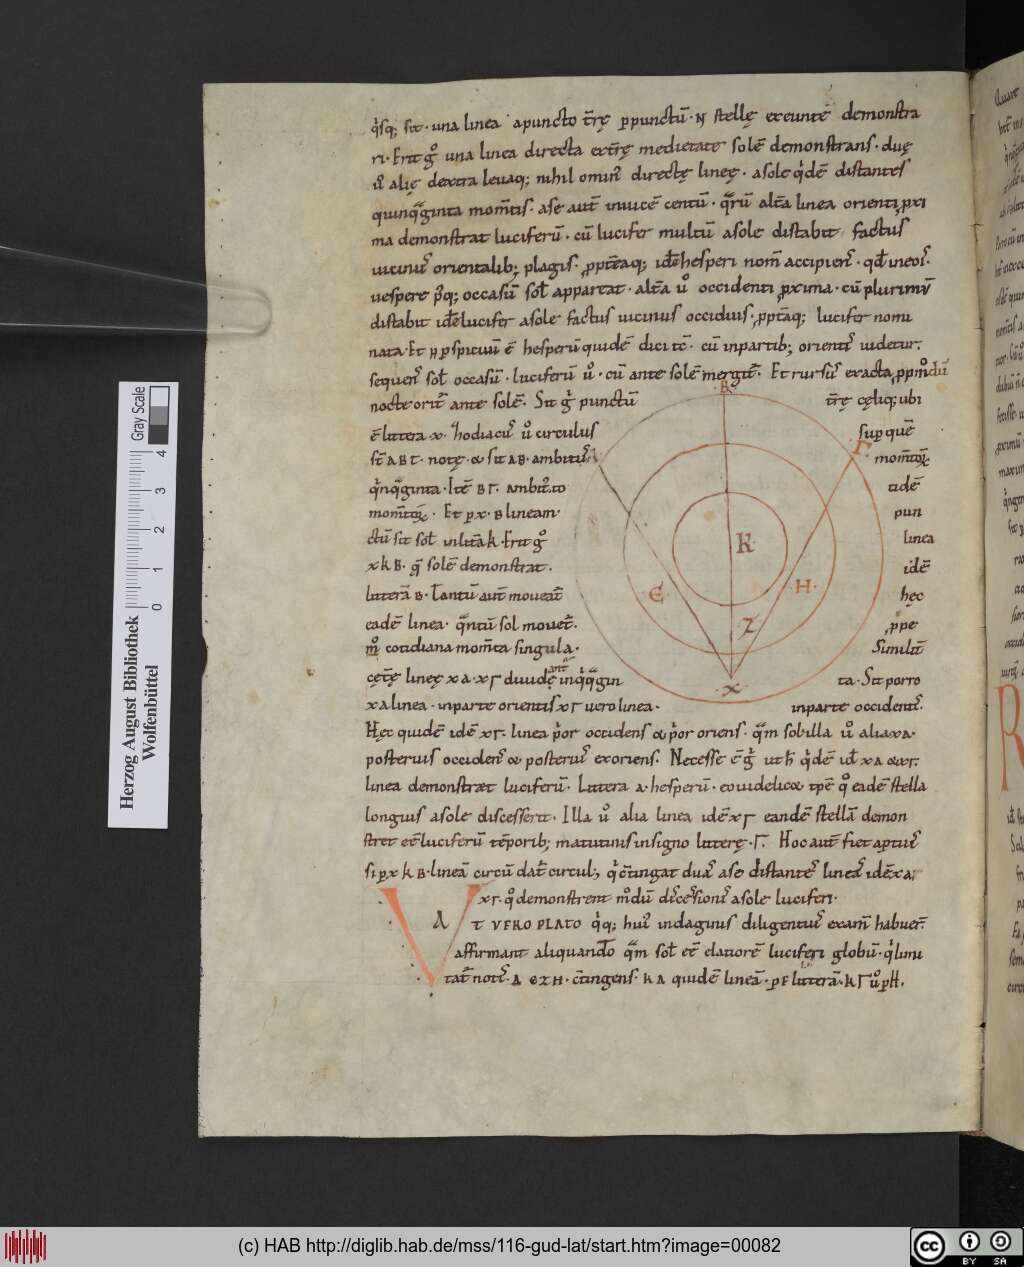 q͛sq; sit · una linea · apuncto t̄rę ꝑpunctū · N stellę exeunte demonstra
ri · Erit gͦ una linea directa ext̄rę medietate solē demonstrans · duę
ů alię dextra levaq; nihil omin᷒ directę lineę · a sole q͛dē distantes
quinq̄ginta mom̄tis · a se aut̄ invicē centū · q̄rū alt̄a linea orienti ꝓxi
ma demonstrat luciferū · cū lucifer multū a sole distabit factus
vicin᷒ orientalib; plagis · ꝓpt̄eaq; idē hesperi nom̄ accipien᷒ · qđ in eo᷒ ·
vespere p͛q; occasū sol̄ appareat · alt̄a ů occidenti ꝓxima · cū plurimū
distabit idē lucifer a sole factus vicinus occiduis · ꝓpt̄aq; lucifer nomi
natᷣ · Et ꝑspicuū ē hesperū quidē dici tc̄ · cū inpartib; orientis videtur ·
sequens sol̄ occasū · luciferū ů · cū ante solē mergitᷣ · Et rursū exacta ꝓpmodū
nocte oritᷣ ante solē · Sit g͛ punctū t̄rę cęliq; ubi
ē littera x · hodiac᷒ ů circulus sup quē
st̄ A B Γ · notę · & sit A B · ambit᷒ mom̄toꝝ
q͛nq̄ginta · Itē B Γ · ambit᷒ to tidē
mom̄toꝝ · Et ꝑ x · B lineam pun
ctū sit sol̄ in litt̄a K · Erit gͦ linea
x K B · q̄ solē demonstrat · idē
litterā B · Tantū aut̄ moveatᷣ hęc
eadē linea · q̄ntū sol movetᷣ · ꝓpe
m̊ cotidiana mom̄ta singula · Similit̄
cęt̄ę lineę x A · x Γ duudę
ant
in q͛q̄gin ta · Sit porro
x A linea · inparte orientis x Γ vero linea · inparte occidentis ·
Hęc quidē idē x Γ · linea p͛or occidens & p͛or oriens · q̄m sob illa ů alia x A ·
posterius occidens & posteri᷒ exoriens · Necesse ē g͛ ut h̄ q͛dē id x A & x Γ ·
linea demonstret luciferū · Littera A · hesperū · eo videlicet tp̄e qͦ eadē stella
longius a sole discesserit · Illa ů alia linea idē x Γ eandē stellā demon
stret eē luciferū tēporib; matutinis in signo litterę · Γ · Hoc autē fiet aptius
si ꝑ x K B · lineā circū datᷣ circul᷒; q͛ c̄tingat duas a se distantes lineas idē x A ;
x Γ · qͦ demonstrent m̊dū discessionis a sole luciferi ·
VAT VERO PLATO q͛q; hui᷒ indaginis diligenti᷒ exam̄ habuer̄ ·
affirmant aliquando q̄m sol̄ eē elatiorē luciferi globū · q͛ limi
tatᷣ notis · A E Z H · c̄tingens · K A quidē lineā · ꝑ E litterā · K Γ ů ꝑ H ·
B
Γ
A
K
E
H
Z
X
Quare
Gray Scale
4
3
2
1
0
Herzog August Bibliothek
Wolfenbüttel
(c) HAB http://diglib.hab.de/mss/116-gud-lat/start.htm?image=00082
cc
BY SA